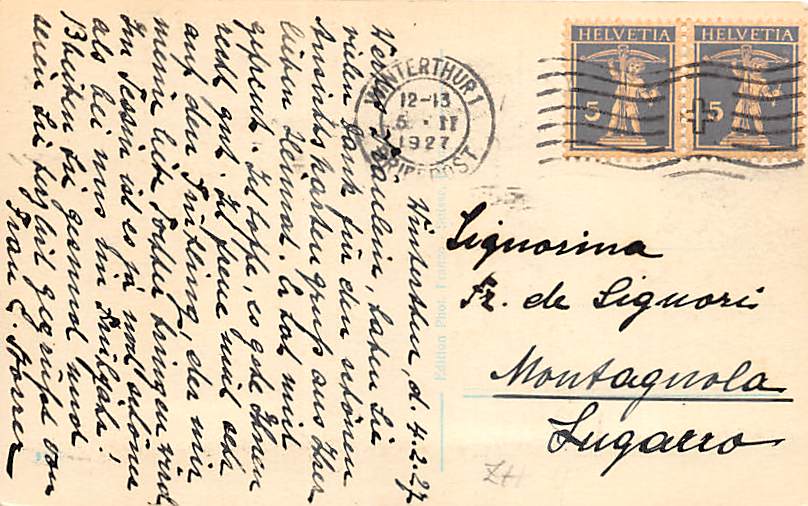 Winterthur, d. 4.2.27
Wertes Fräulein, haben Sie
vielen Dank für den schönen
Ansichtskarten gruss aus Ihrer
lieben Heimat. Es hat mich
gefreut. Ich hoffe, es gehe Ihnen
recht gut. Ich freue mich sehr
auf den Frühling, der mir
meine liebe Tochter bringen wird.
Im Tessin ist es ja wohl schöner
als bei uns im Frühjahr!
Bleiben Sie gesund und
seien Sie herzlich gegrüsst von
Frau E. Storrer
Edition Phot. Franz
WINTERTHUR 1
12-13
5. II
1927
BRIEFPOST
HELVETIA
5
HELVETIA
5
Signorina
Fr. de Liguori
Montagnola
Lugano
ZH